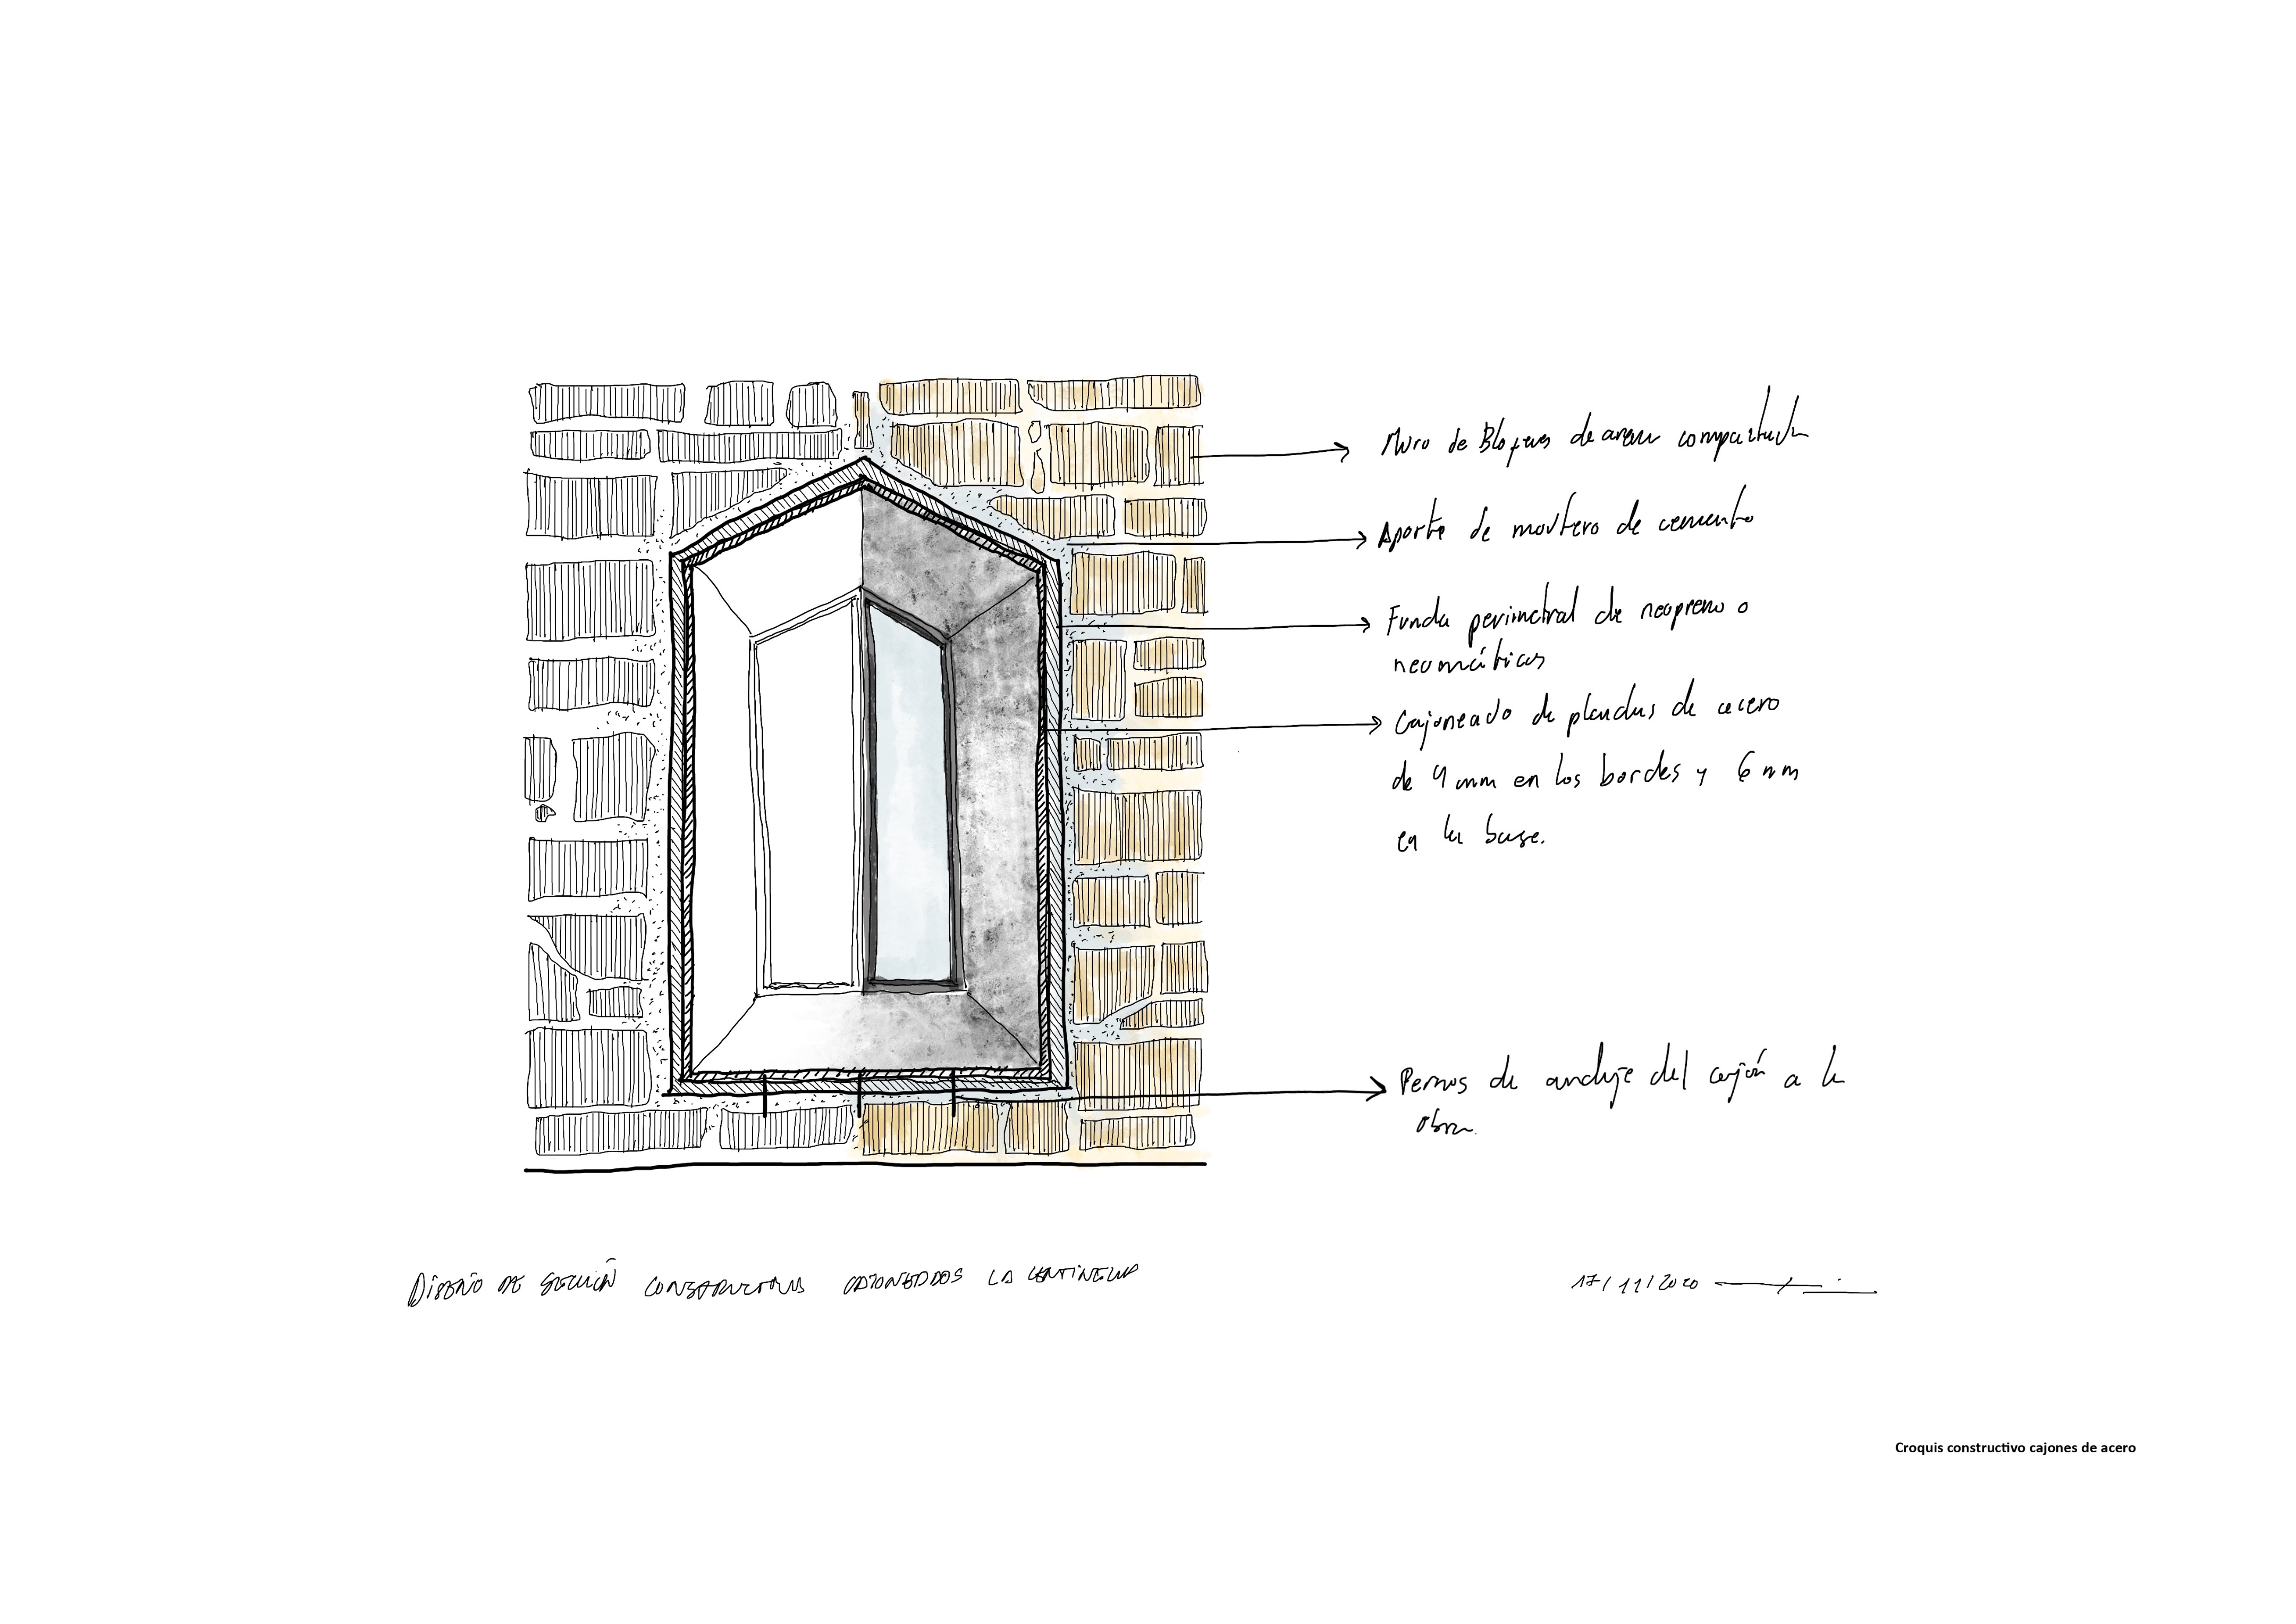 Muro de Bloques de arena compactada
Aporte de mortero de cemento
Funda perimetral de neopreno o
neumáticos
Cajoneado de planchas de acero
de 4 mm en los bordes y 6 mm
en la base.
Pernos de anclaje del cajón a la
obra.
DISEÑO DE SOLUCIÓN CONSTRUCTIVA CAJONEADOS LA CENTINELA
17/11/2020
Croquis constructivo cajones de acero